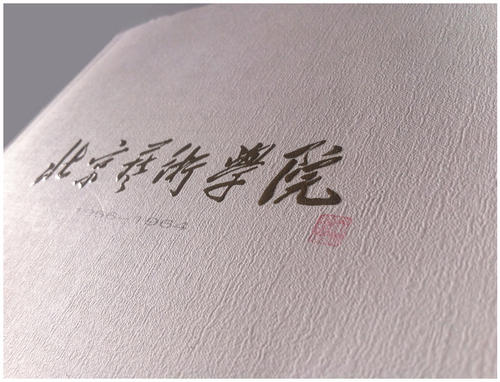 北京藝術學院
1956-1964